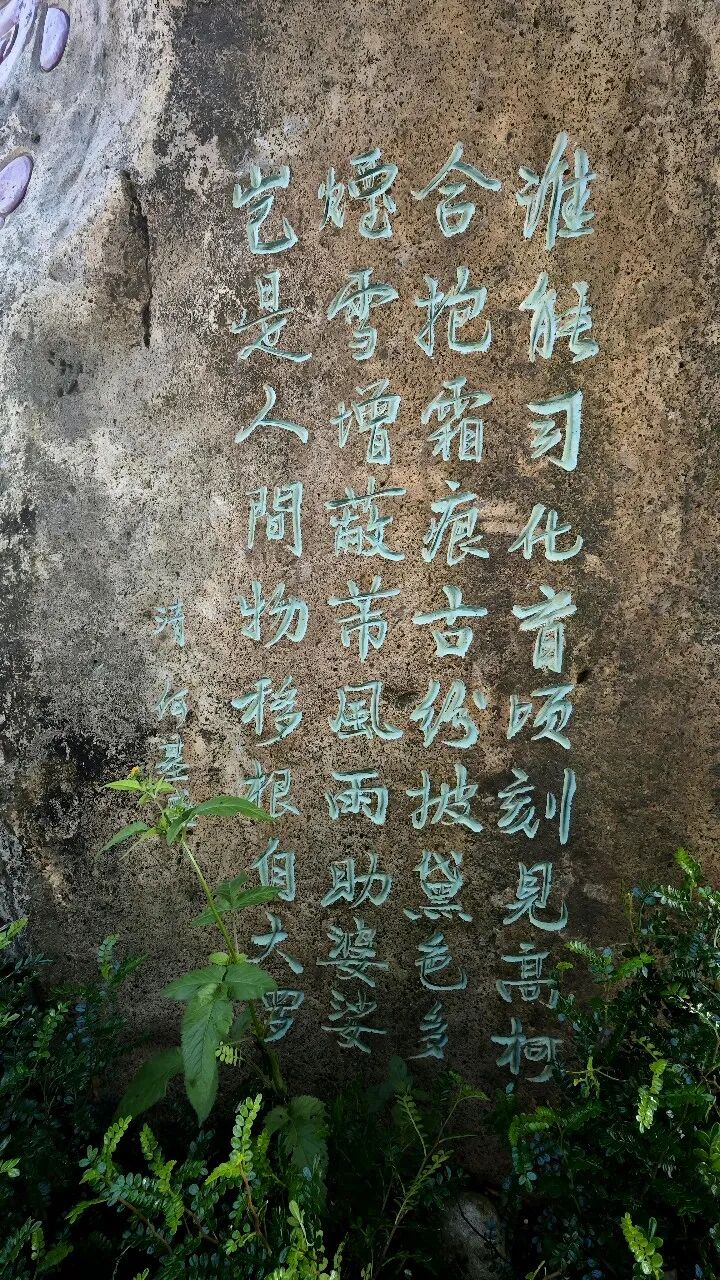 谁能司化首顷刻見高柯
合抱霜痕古纷披黛色多
煙雪增蔽芾風雨助婆娑
岂是人間物移根自大罗
清何基